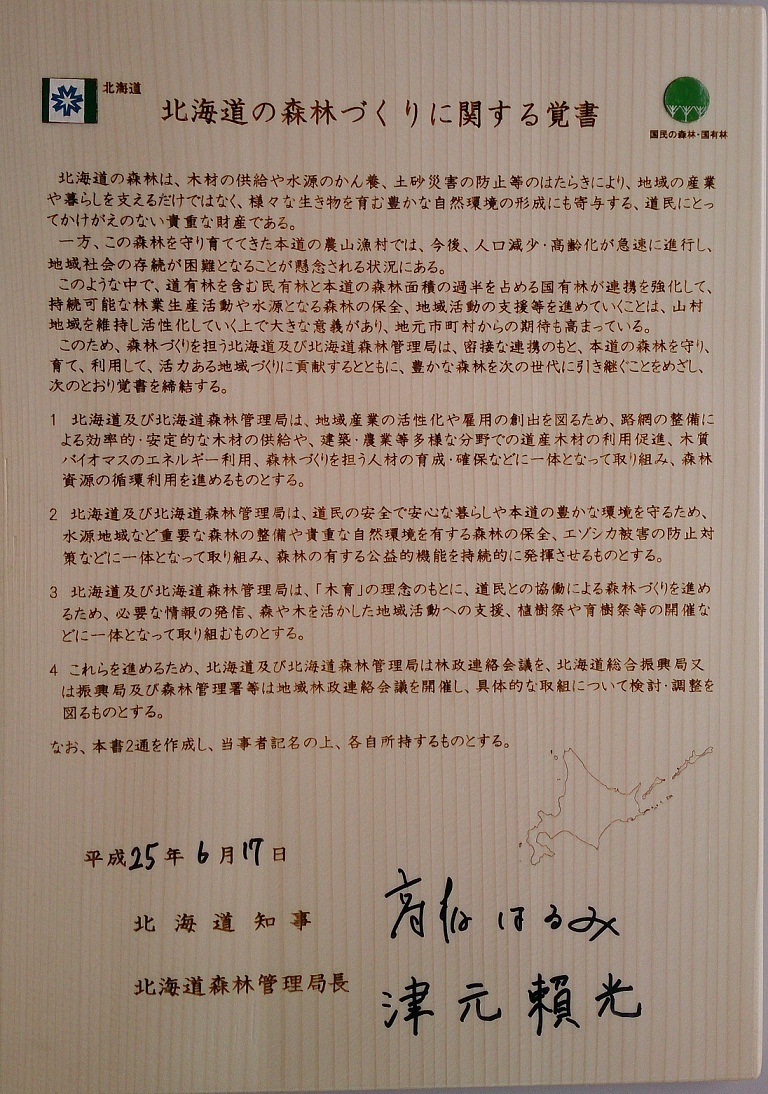 北海道
北海道の森林づくりに関する覚書
国民の森林・国有林
北海道の森林は、木材の供給や水源のかん養、土砂災害の防止等のはたらきにより、地域の産業
や暮らしを支えるだけではなく、様々な生き物を育む豊かな自然環境の形成にも寄与する、道民にとっ
てかけがえのない貴重な財産である。
一方、この森林を守り育ててきた本道の農山漁村では、今後、人口減少・高齢化が急速に進行し、
地域社会の存続が困難となることが懸念される状況にある。
このような中で、道有林を含む民有林と本道の森林面積の過半を占める国有林が連携を強化して、
持続可能な林業生産活動や水源となる森林の保全、地域活動の支援等を進めていくことは、山村
地域を維持し活性化していく上で大きな意義があり、地元市町村からの期待も高まっている。
このため、森林づくりを担う北海道及び北海道森林管理局は、密接な連携のもと、本道の森林を守り、
育て、利用して、活力ある地域づくりに貢献するとともに、豊かな森林を次の世代に引き継ぐことをめざし、
次のとおり覚書を締結する。
1 北海道及び北海道森林管理局は、地域産業の活性化や雇用の創出を図るため、路網の整備に
よる効率的・安定的な木材の供給や、建築・農業等多様な分野での道産木材の利用促進、木質
バイオマスのエネルギー利用、森林づくりを担う人材の育成・確保などに一体となって取り組み、森林
資源の循環利用を進めるものとする。
2 北海道及び北海道森林管理局は、道民の安全で安心な暮らしや本道の豊かな環境を守るため、
水源地域など重要な森林の整備や貴重な自然環境を有する森林の保全、エゾシカ被害の防止対
策などに一体となって取り組み、森林の有する公益的機能を持続的に発揮させるものとする。
3 北海道及び北海道森林管理局は、「木育」の理念のもとに、道民との協働による森林づくりを進め
るため、必要な情報の発信、森や木を活かした地域活動への支援、植樹祭や育樹祭等の開催な
どに一体となって取り組むものとする。
4 これらを進めるため、北海道及び北海道森林管理局は林政連絡会議を、北海道総合振興局又
は振興局及び森林管理署等は地域林政連絡会議を開催し、具体的な取組について検討・調整を
図るものとする。
なお、本書2通を作成し、当事者記名の上、各自所持するものとする。
平成25年6月17日
北海道知事 高橋はるみ
北海道森林管理局長 津元賴光